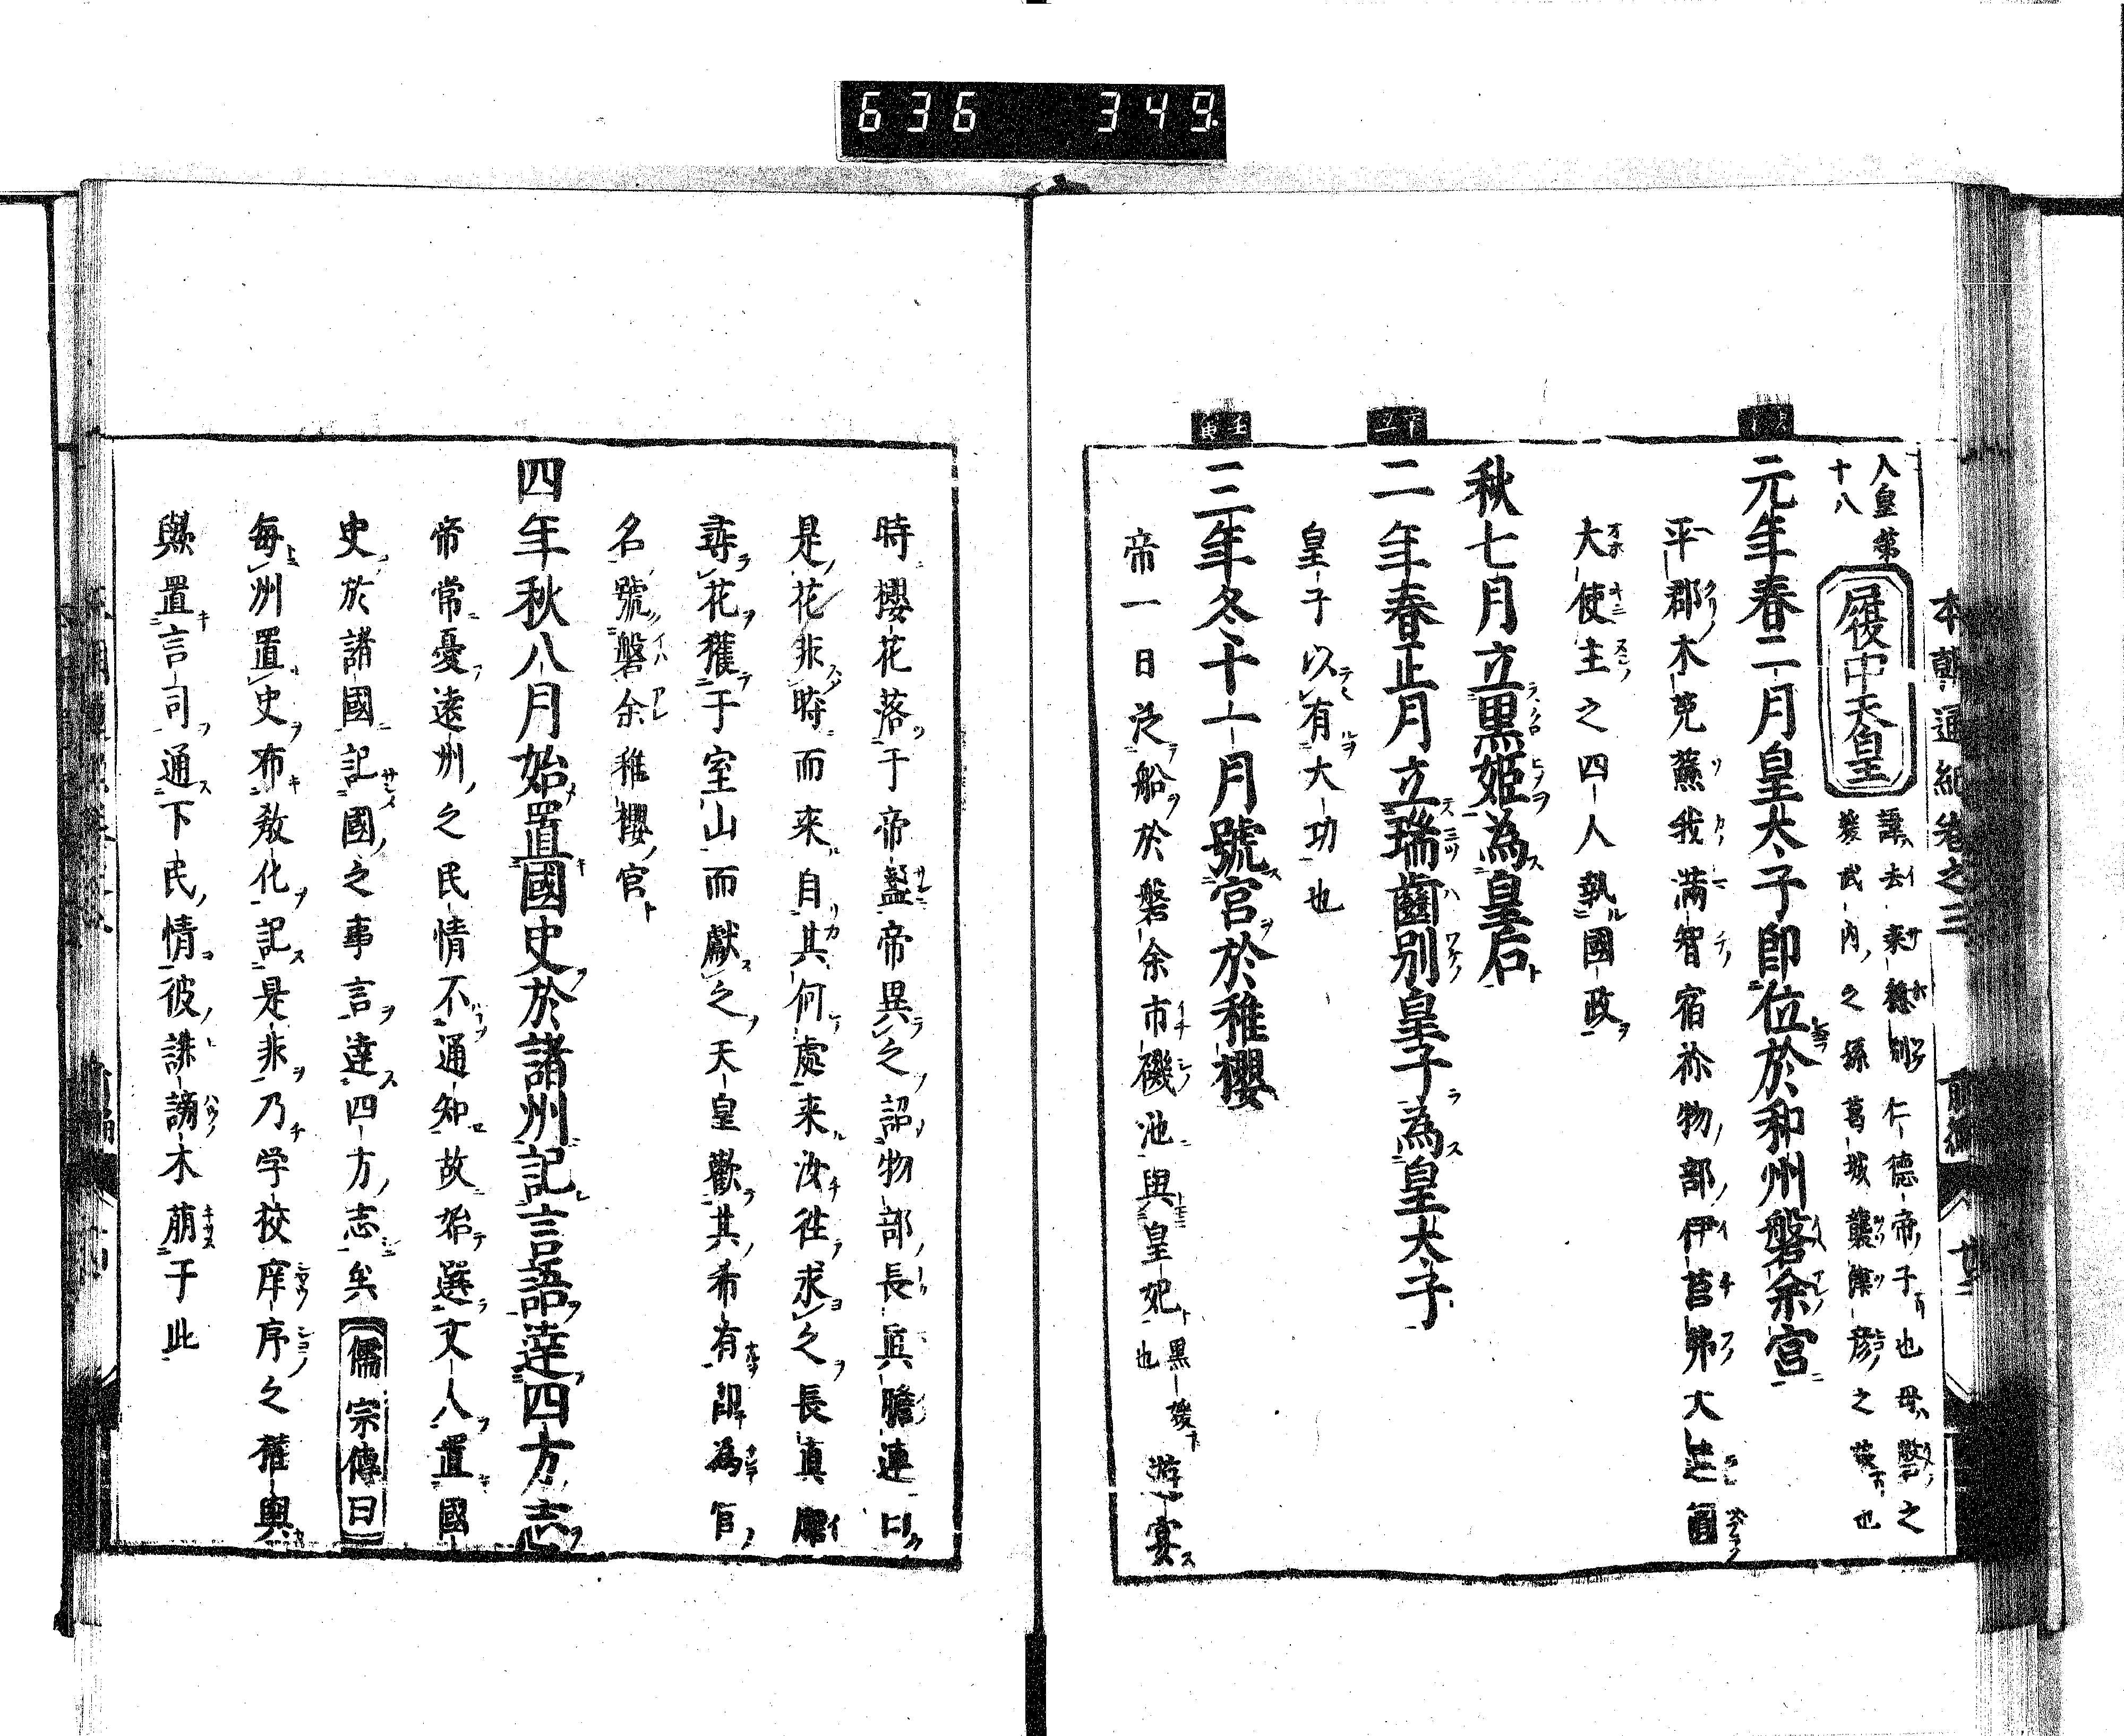 636 349
本朝通紀卷之三 前編
人皇第十八
履中天皇
諱去来穂別仁德帝子也母磐之
媛武内之孫葛城襲津彦之女也
元年春二月皇太子即位於和州磐余宮
平郡木莵蘇我滿智宿祢物部伊莒弗大連圓
大使主之四人執國政
秋七月立黒姫為皇后
辛丑
二年春正月立瑞齒別皇子為皇太子
皇子以有大功也
壬寅
三年冬十一月號宮於稚櫻
帝一日泛船於磐余市磯池與皇妃黒媛也游宴ス
時櫻花落于帝盞帝異之詔物部長眞膽連曰
是花非時而来自其何處来汝徃求之長真膽
尋花獲于室山而獻之天皇歡其希有即為宮
名號磐余稚櫻宮
四年秋八月始置國史於諸州記言語達四方志
帝常憂遠州之民情不通知故始選文人置國
史於諸國記國之事言達四方志矣 儒宗傳曰
毎洲置史布教化記是非乃学校庠序之權輿
歟置言司通下民情彼誹謗木萠于此